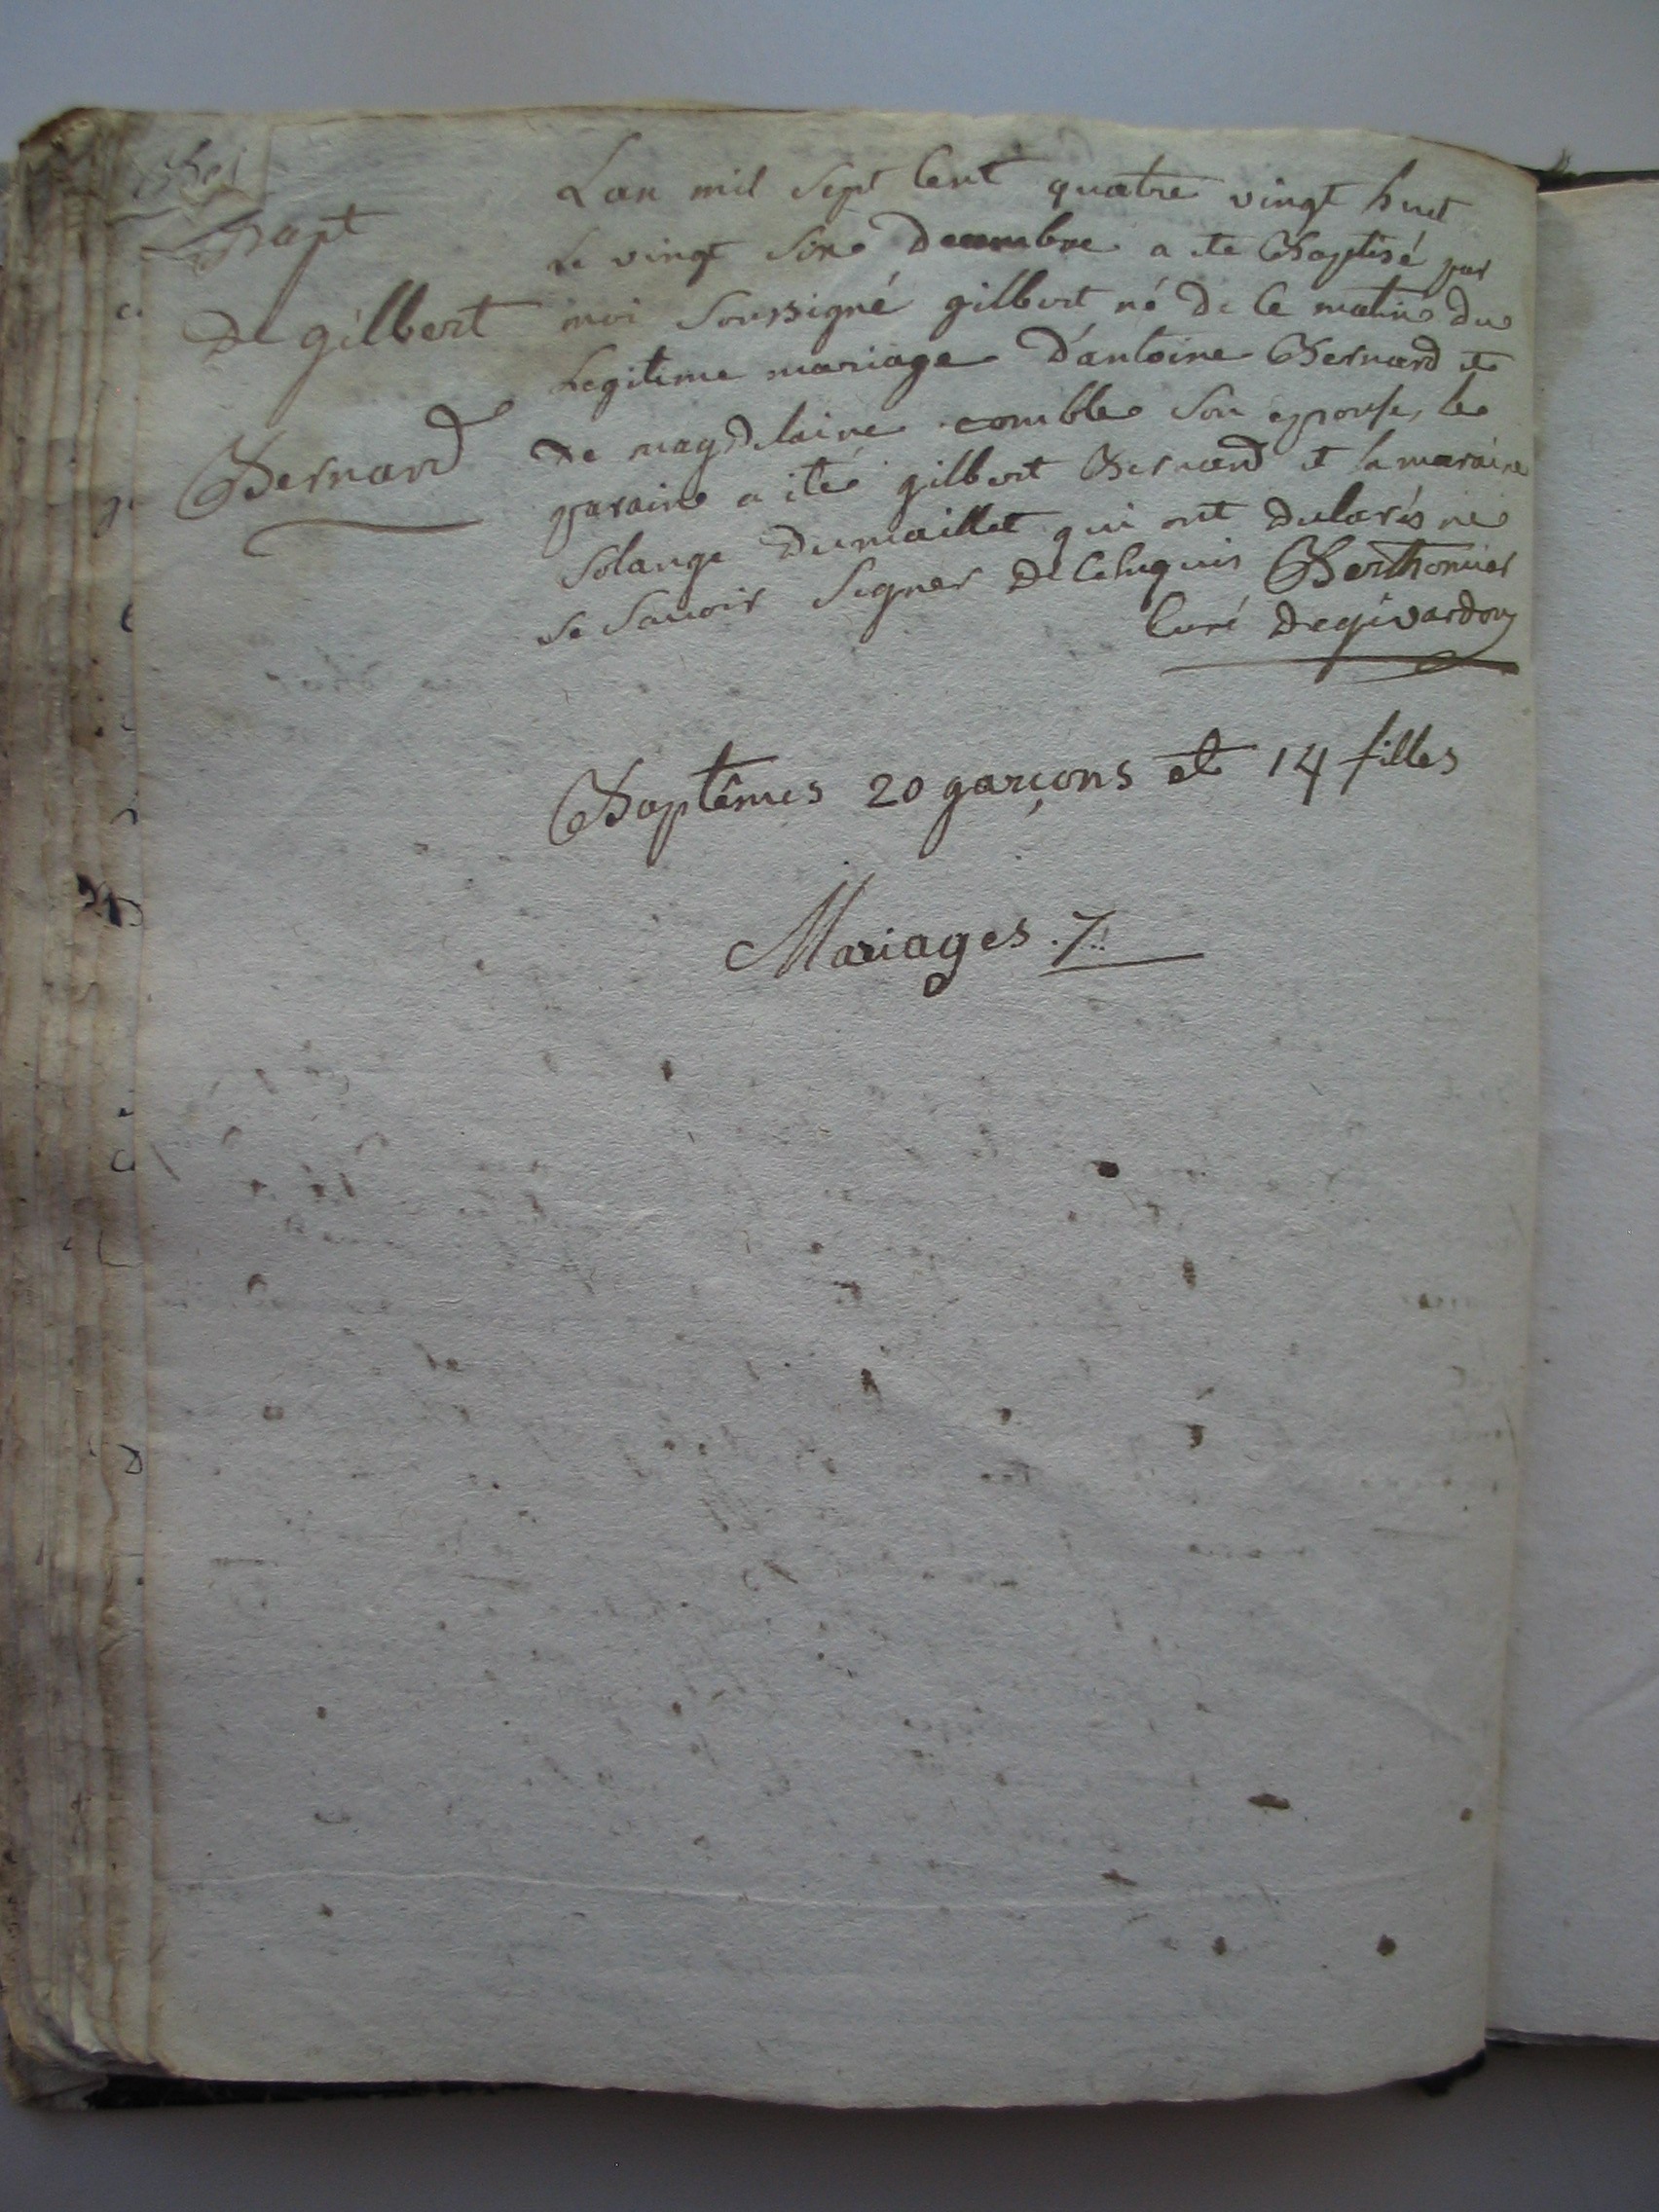 Bapt
De gilbert
Bernard
Lan mil sept Cent quatre vingt huit
Le vingt sixe Decembre a ete Baptisé par
moi soussigné gilbert né de ce matin du
Legitime mariage D'antoine Bernard et
De magdelaine comble son epouse, le
parain a ité gilbert Bernard et la maraine
Solange Dumaillet qui ont declarés ne
se savoir signer De Ce enquis Berthomier
Curé de givardon
Baptêmes 20 garçons et 14 filles
Mariages .7.